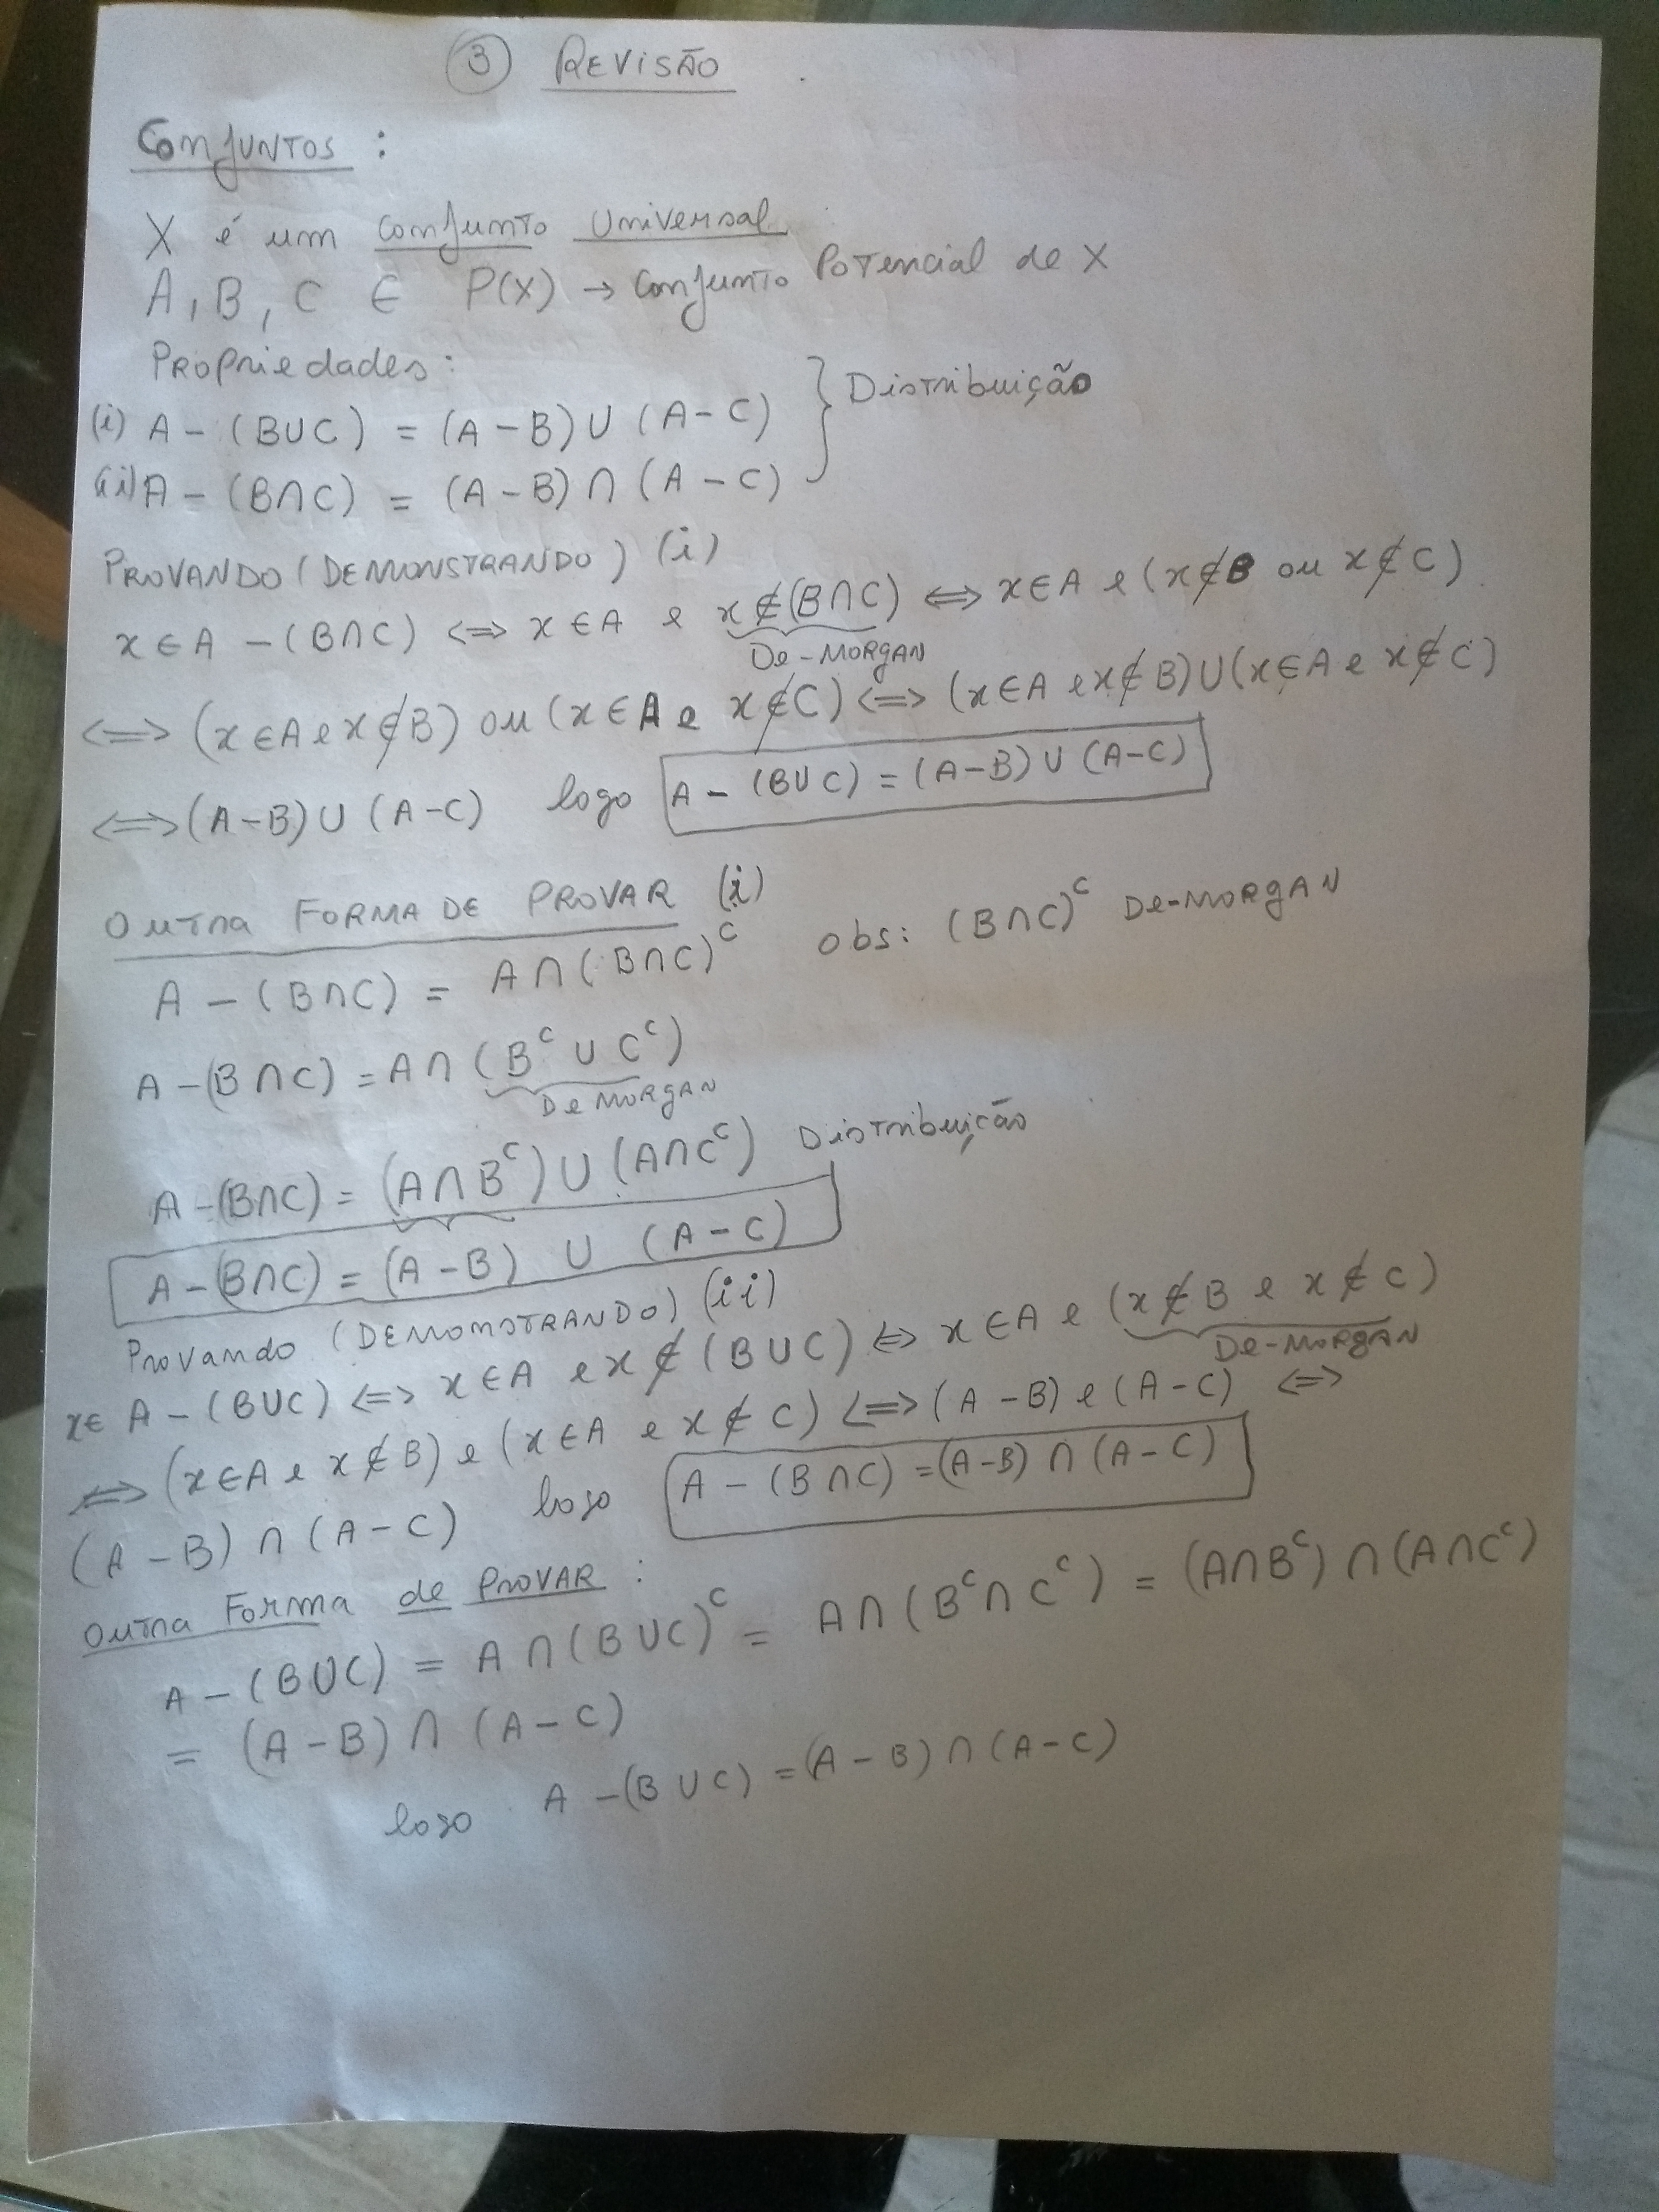 ③ REVISÃO
CONJUNTOS :
X é um conjunto Universal
A, B, C ∈ P(X) → conjunto Potencial de X
Propriedades:
(i) A - (B∪C) = (A-B) ∪ (A-C) } Distribuição
(ii) A - (B∩C) = (A-B) ∩ (A-C)
PROVANDO (DEMONSTRANDO) (i)
x ∈ A - (B∩C) <=> x ∈ A e x ∉ (B∩C) <=> x ∈ A e (x ∉ B ou x ∉ C)
De-MORGAN
<=> (x ∈ A e x ∉ B) ou (x ∈ A e x ∉ C) <=> (x ∈ A e x ∉ B) ∪ (x ∈ A e x ∉ C)
<=> (A-B) ∪ (A-C) logo A - (B∪C) = (A-B) ∪ (A-C)
Outra FORMA DE PROVAR (i)
A - (B∩C) = A∩(B∩C)ᶜ obs: (B∩C)ᶜ De-MORGAN
A - (B∩C) = A∩(Bᶜ ∪ Cᶜ)
De MORGAN
A - (B∩C) = (A∩Bᶜ) ∪ (A∩Cᶜ) Distribuição
A - (B∩C) = (A-B) ∪ (A-C)
Provando (DEMONSTRANDO) (ii)
x ∈ A - (B∪C) <=> x ∈ A e x ∉ (B∪C) <=> x ∈ A e (x ∉ B e x ∉ C)
De-MORGAN
<=> (x ∈ A e x ∉ B) e (x ∈ A e x ∉ C) <=> (A-B) e (A-C) <=>
(A-B) ∩ (A-C) logo A - (B∩C) = (A-B) ∩ (A-C)
Outra Forma de PROVAR :
A - (B∪C) = A∩(B∪C)ᶜ = A∩(Bᶜ∩Cᶜ) = (A∩Bᶜ) ∩ (A∩Cᶜ)
= (A-B) ∩ (A-C)
logo A - (B∪C) = (A-B) ∩ (A-C)